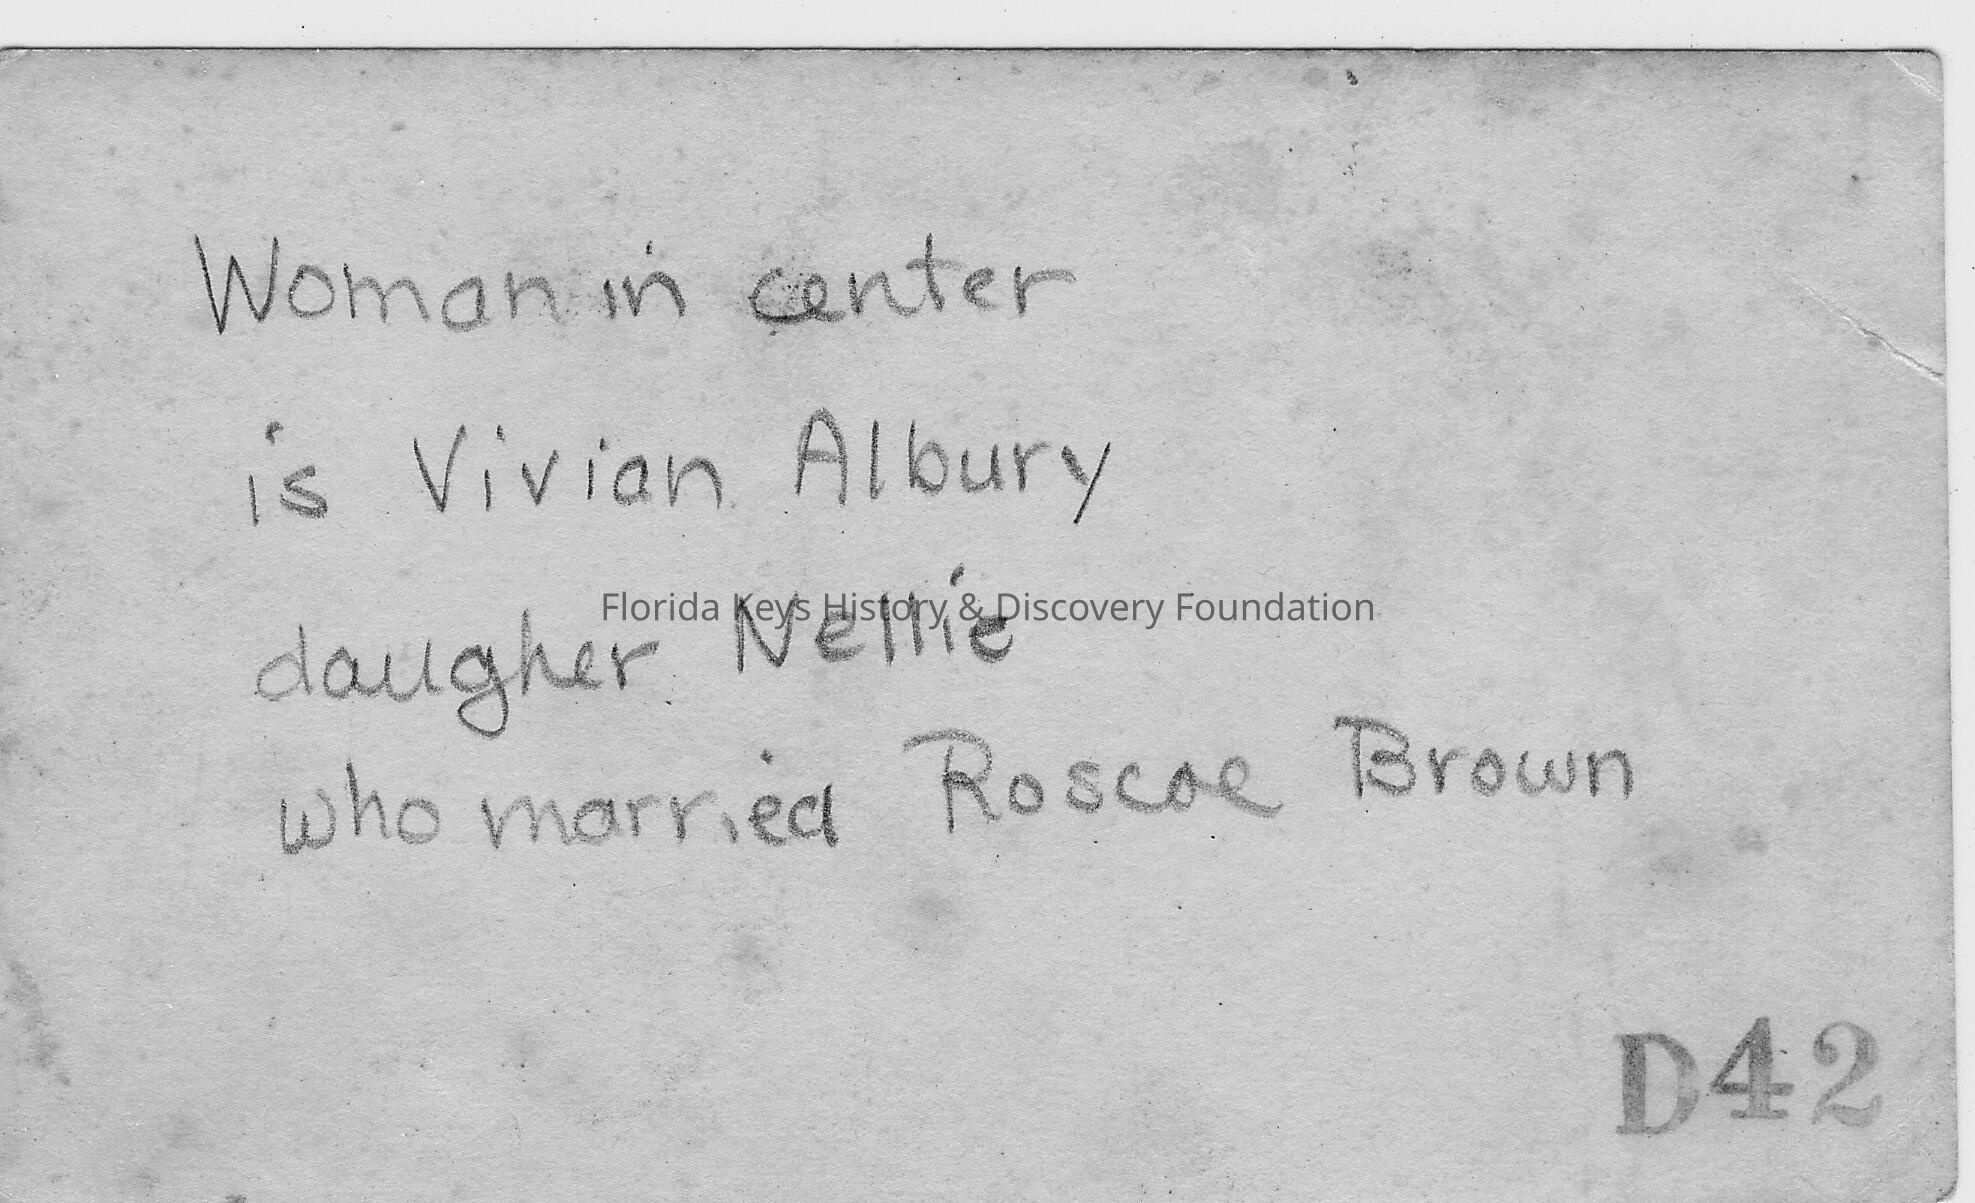 Woman in center
is Vivian Albury
Florida Keys History & Discovery Foundation
daugher Nellie
who married Roscoe Brown
D42